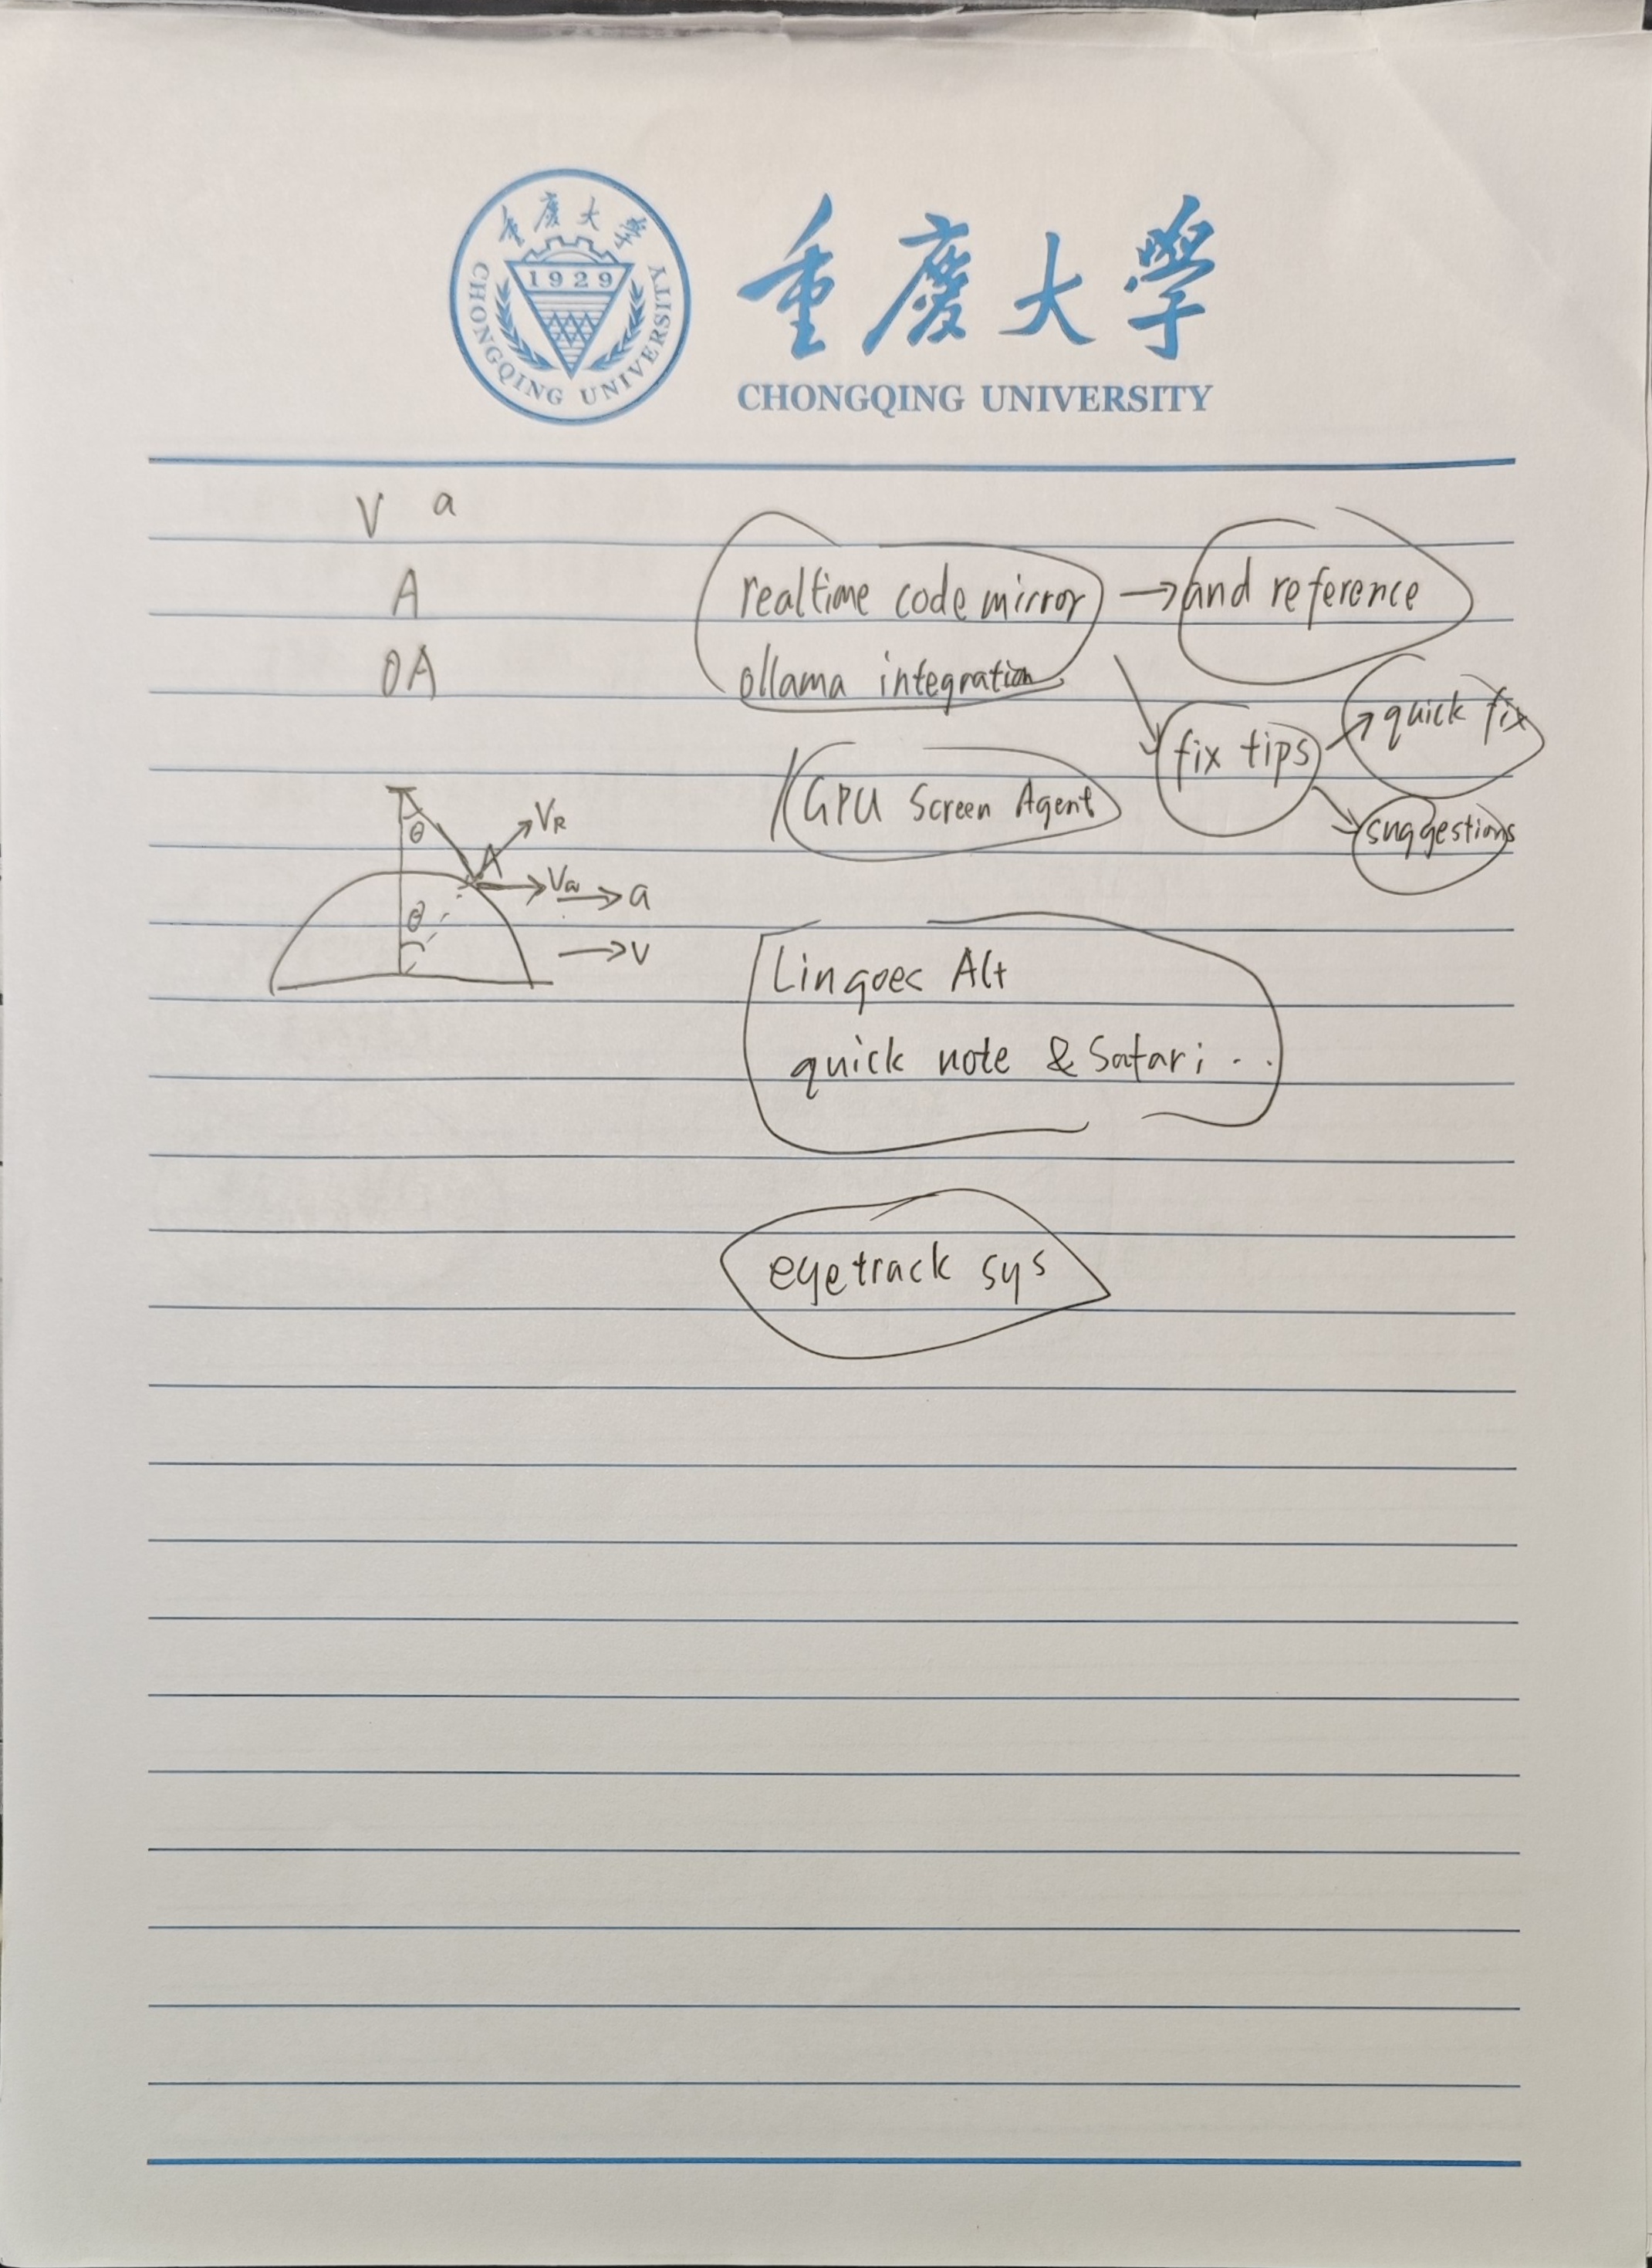 重慶大學
1929
CHONGQING UNIVERSITY
重慶大學
CHONGQING UNIVERSITY
V a
A
OA
realtime code mirror → and reference
ollama integration
fix tips
quick fix
suggestions
GPU Screen Agent
θ
VR
A
a
θ
V
Lingoes Alt
quick note & Safari ..
eyetrack sys